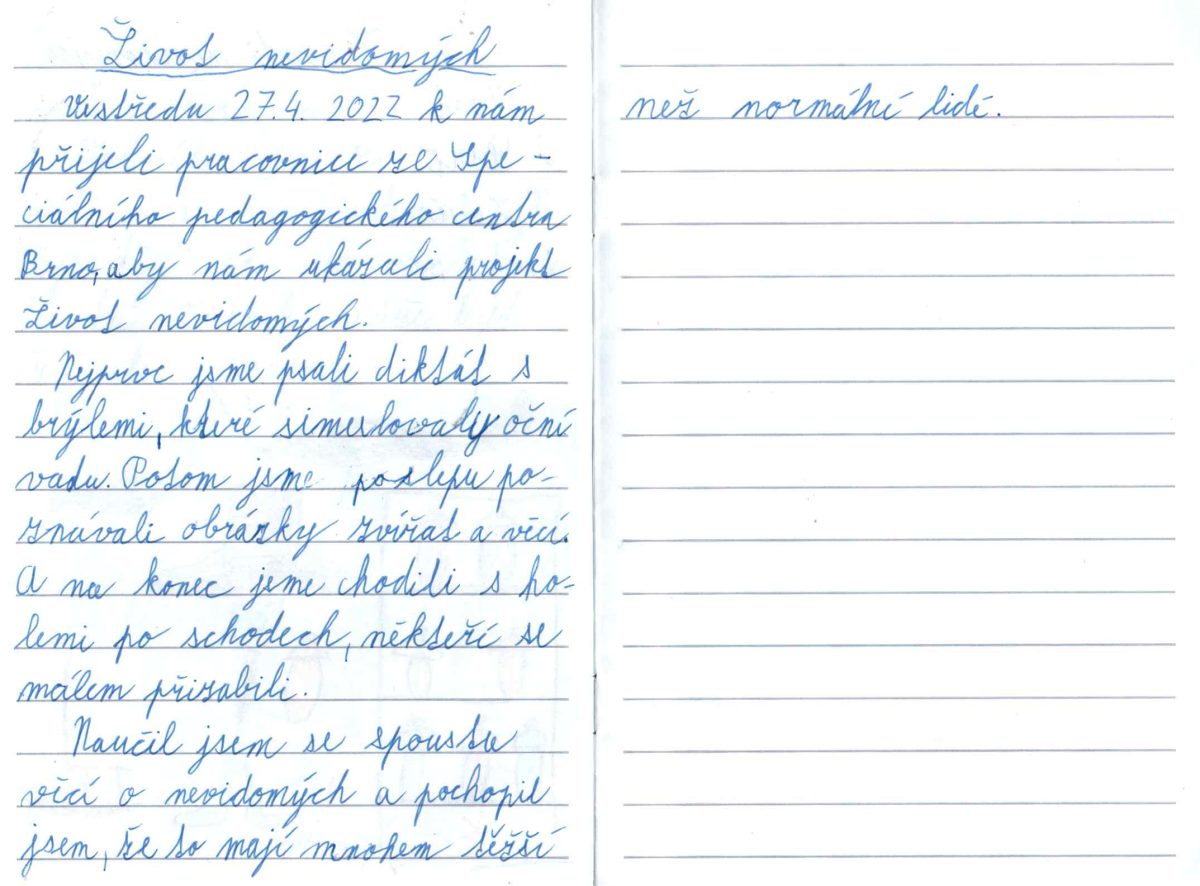 Život nevidomých
Ve středu 27.4. 2022 k nám
přijeli pracovnice ze Spe-
ciálního pedagogického centra
Brno, aby nám ukázali projekt
Život nevidomých.
Nejprve jsme psali diktát s
brýlemi, které simulovaly oční
vadu. Potom jsme poslepu po-
znávali obrázky zvířat a věcí.
A na konec jsme chodili s ho-
lemi po schodech, někteří se
málem přizabili.
Naučil jsem se spoustu
věcí o nevidomých a pochopil
jsem, že to mají mnohem těžší
než normální lidé.